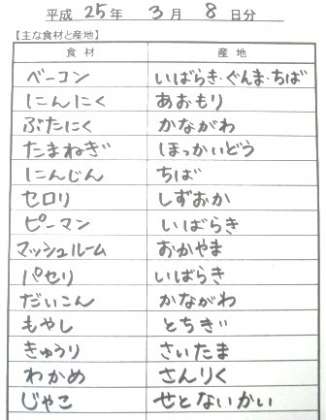 平成 25年 3月 8日分
【主な食材と産地】
食材 産地
ベーコン いばらき・ぐんま・ちば
にんにく あおもり
ぶたにく かながわ
たまねぎ ほっかいどう
にんじん ちば
セロリ しずおか
ピーマン いばらき
マッシュルーム おかやま
パセリ いばらき
だいこん かながわ
もやし とちぎ
きゅうり さいたま
わかめ さんりく
じゃこ せとないかい